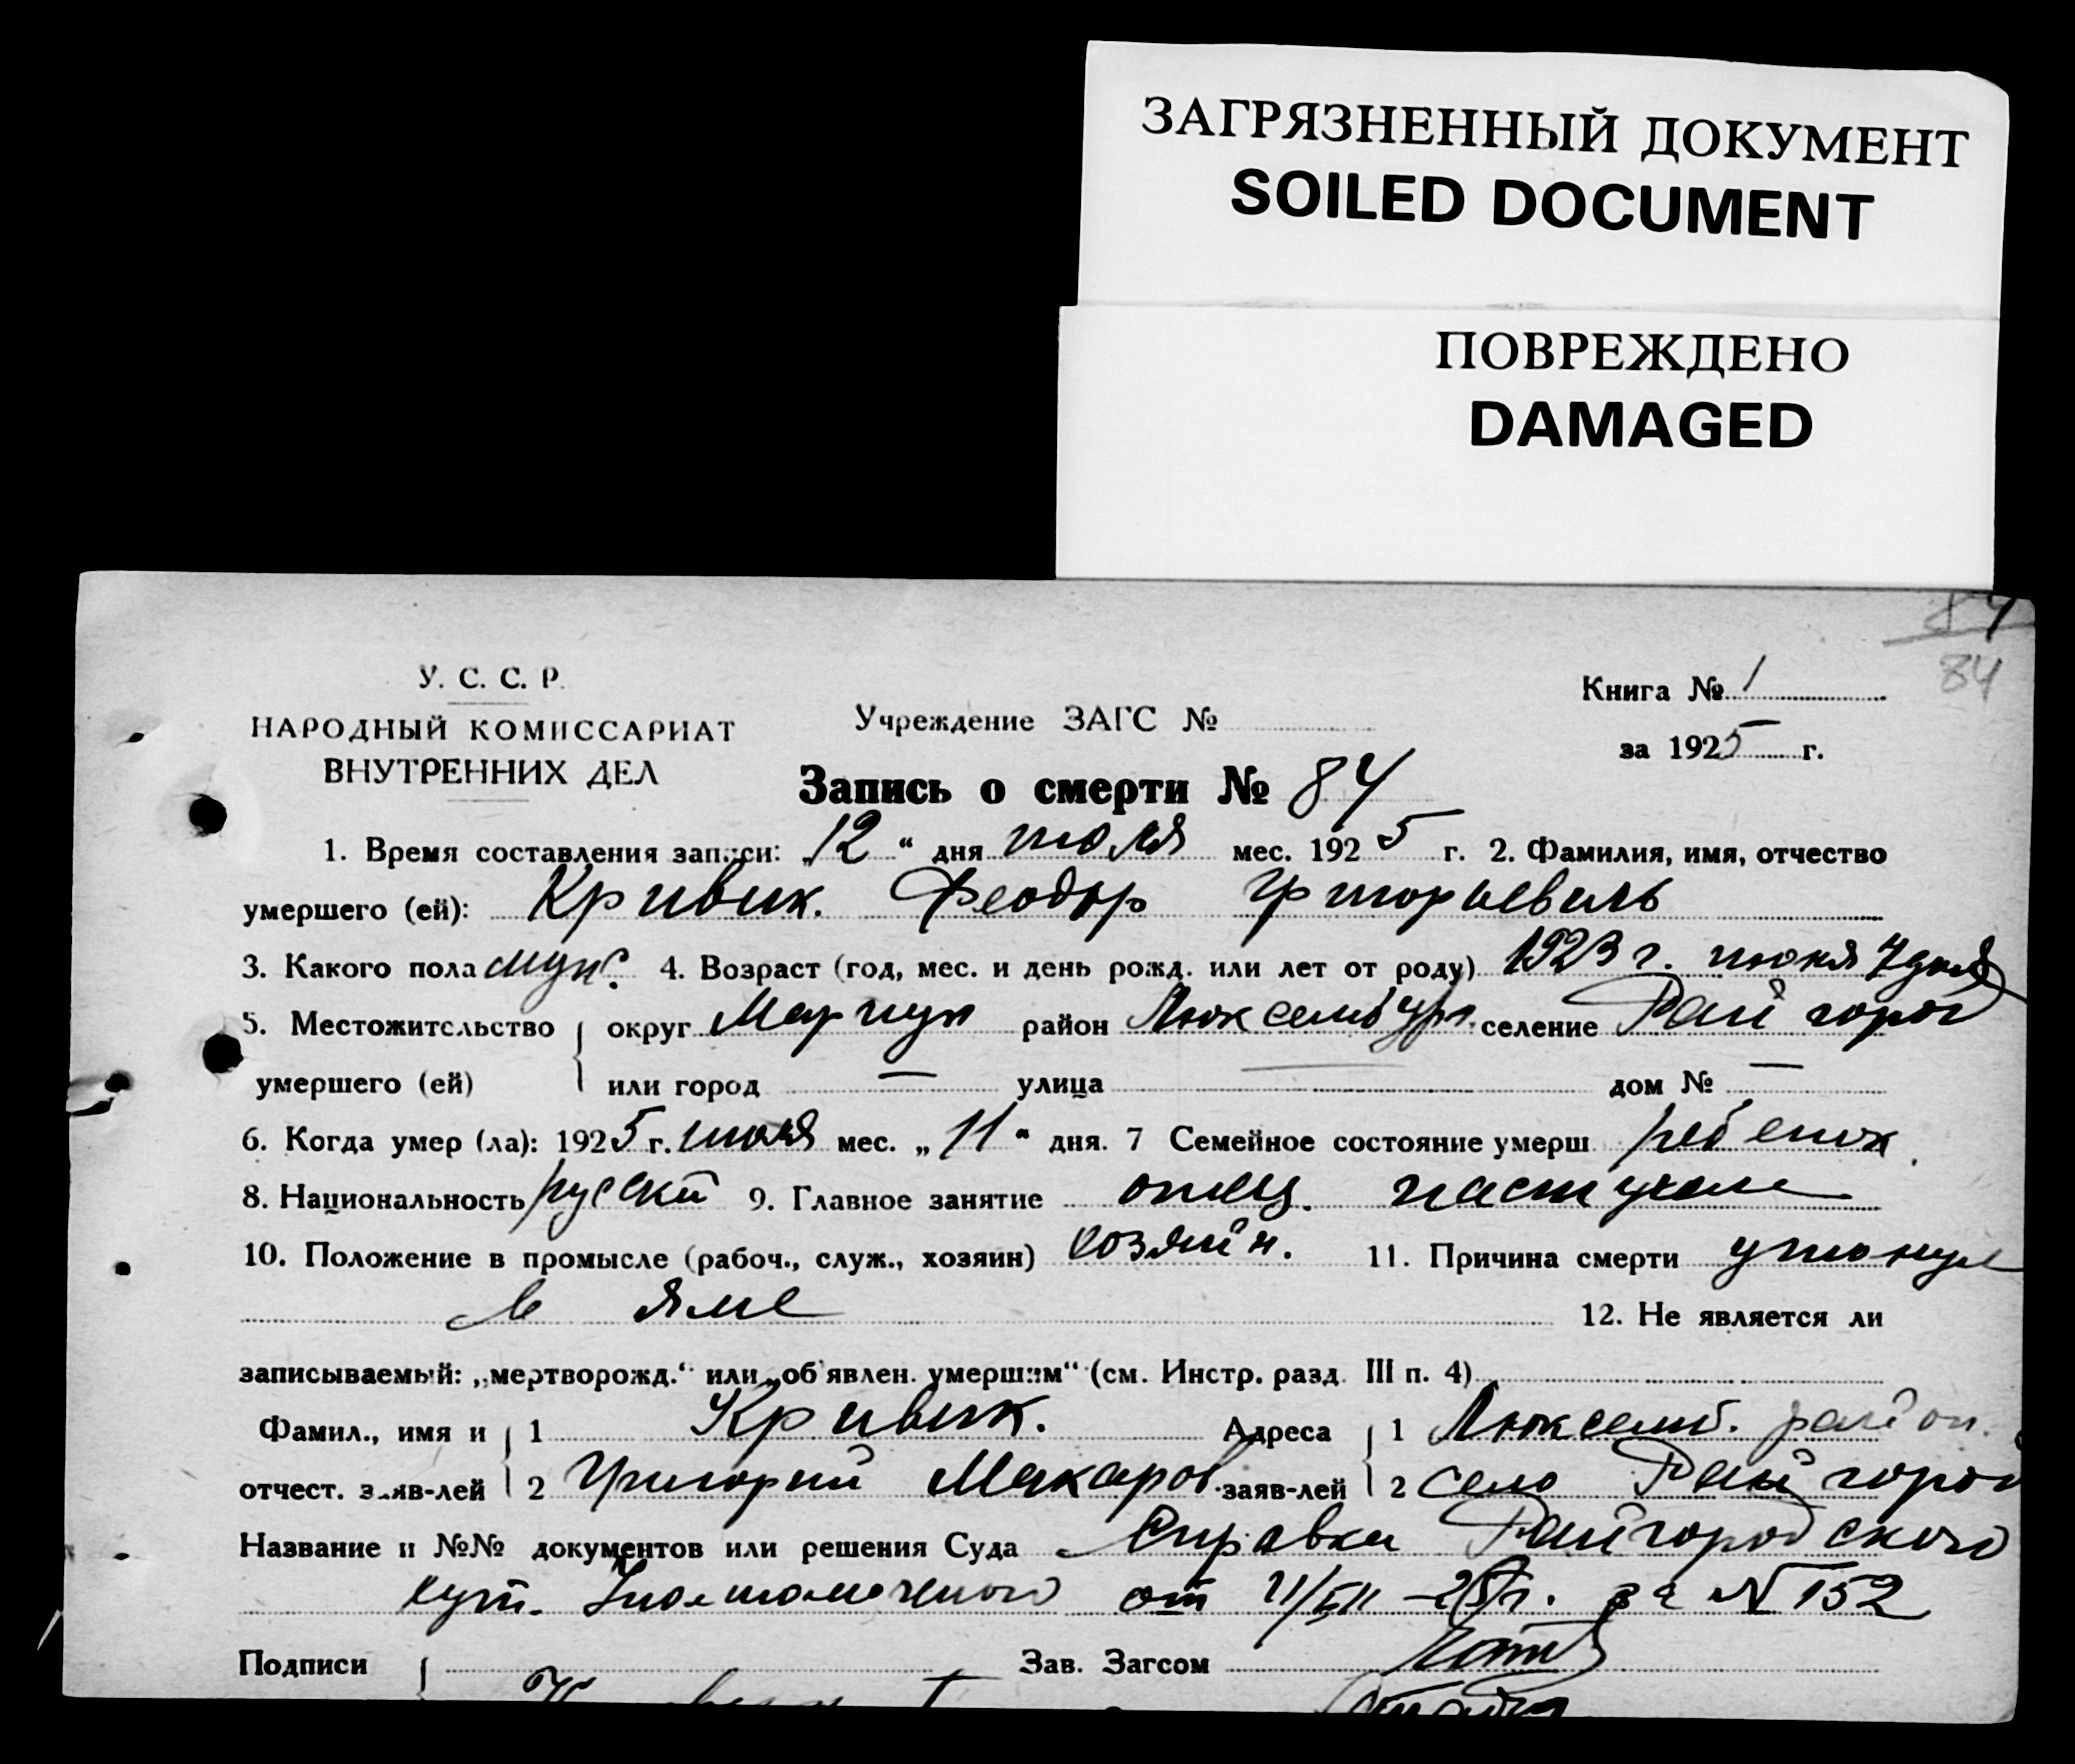 ЗАГРЯЗНЕННЫЙ ДОКУМЕНТ
SOILED DOCUMENT
ПОВРЕЖДЕНО
DAMAGED
84
84
У. С. С. Р.
НАРОДНЫЙ КОМИССАРИАТ
ВНУТРЕННИХ ДЕЛ
Учреждение ЗАГС №
Книга № 1
за 1925 г.
Запись о смерти № 84
1. Время составления записи: „12“ дня июля мес. 1925 г. 2. Фамилия, имя, отчество
умершего (ей): Кривик. Феодор Григорьевичь
3. Какого пола муж. 4. Возраст (год, мес. и день рожд. или лет от роду) 1923 г. июня 7 дня
5. Местожительство округ Мариуп район Люксембург. селение Райгород
умершего (ей) или город — улица — дом № —
6. Когда умер (ла): 1925 г. июля мес. „11“ дня. 7 Семейное состояние умерш ребенок
8. Национальность руский 9. Главное занятие отец. пастухом
10. Положение в промысле (рабоч., служ., хозяин) хозяин. 11. Причина смерти утонул
в яме 12. Не является ли
записываемый: „мертворожд.“ или „об'явлен. умершим“ (см. Инстр. разд. III п. 4)
Фамил., имя и 1 Кривик. Адреса 1 Люксемб. район.
отчест. заяв-лей 2 Григорий Макаров. заяв-лей 2 село Райгород
Название и №№ документов или решения Суда Справка Райгородского
хут. от 11/VII — 25 г. за № 152
Подписи Зав. Загсом